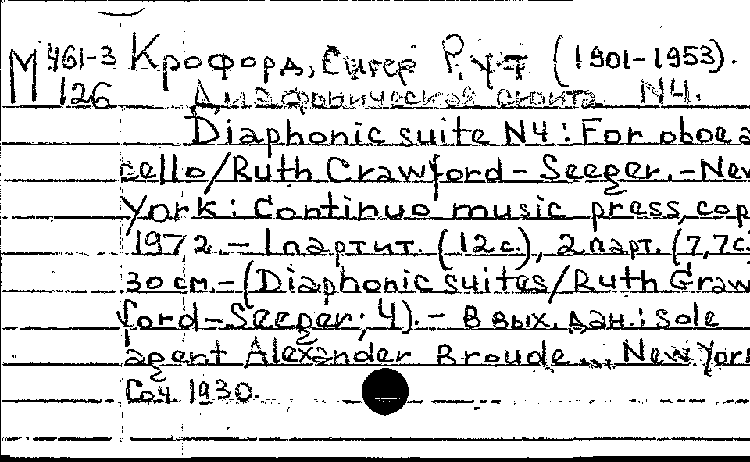 М 461-3 Крофорд, Сигер Рут (1901-1953).
126 Диафоническая сюита N4.
Diaphonic suite N4: For oboe a
cello/Ruth Crawford-Seeger.-New
York: Continuo music press, cop
1972.- 1 партит. (12 с.), 2 парт. (7,7с
30 см.-(Diaphonic suites/Ruth Craw
ford-Seeger; 4).- В вых. дан.: sole
agent Alexander Broude... New York
Соч. 1930.